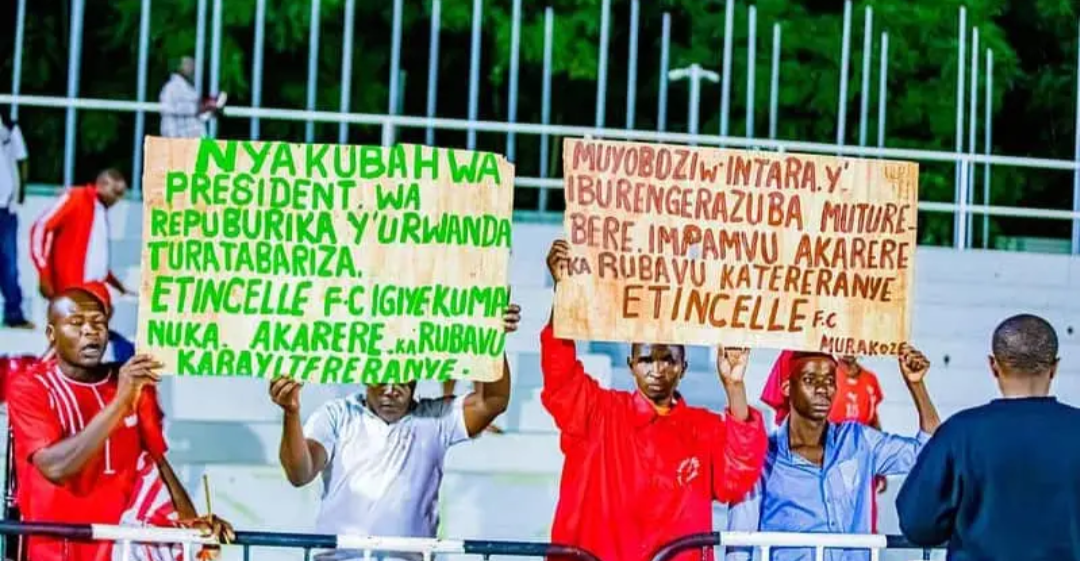 NYAKUBAHWA
PRESIDENT. WA
REPUBURIKA Y'URWANDA
TURATABARIZA.
ETINCELLE F.C IGIYEKUMA
NUKA. AKARERE.KA RUBAVU
KARAYITERERANYE.
MUYOBOZI W'INTARA.Y'
IBURENGERAZUBA MUTURE-
BERE. IMPAMVU AKARERE
KA RUBAVU KATERERANYE
ETINCELLE F.C
MURAKOZE